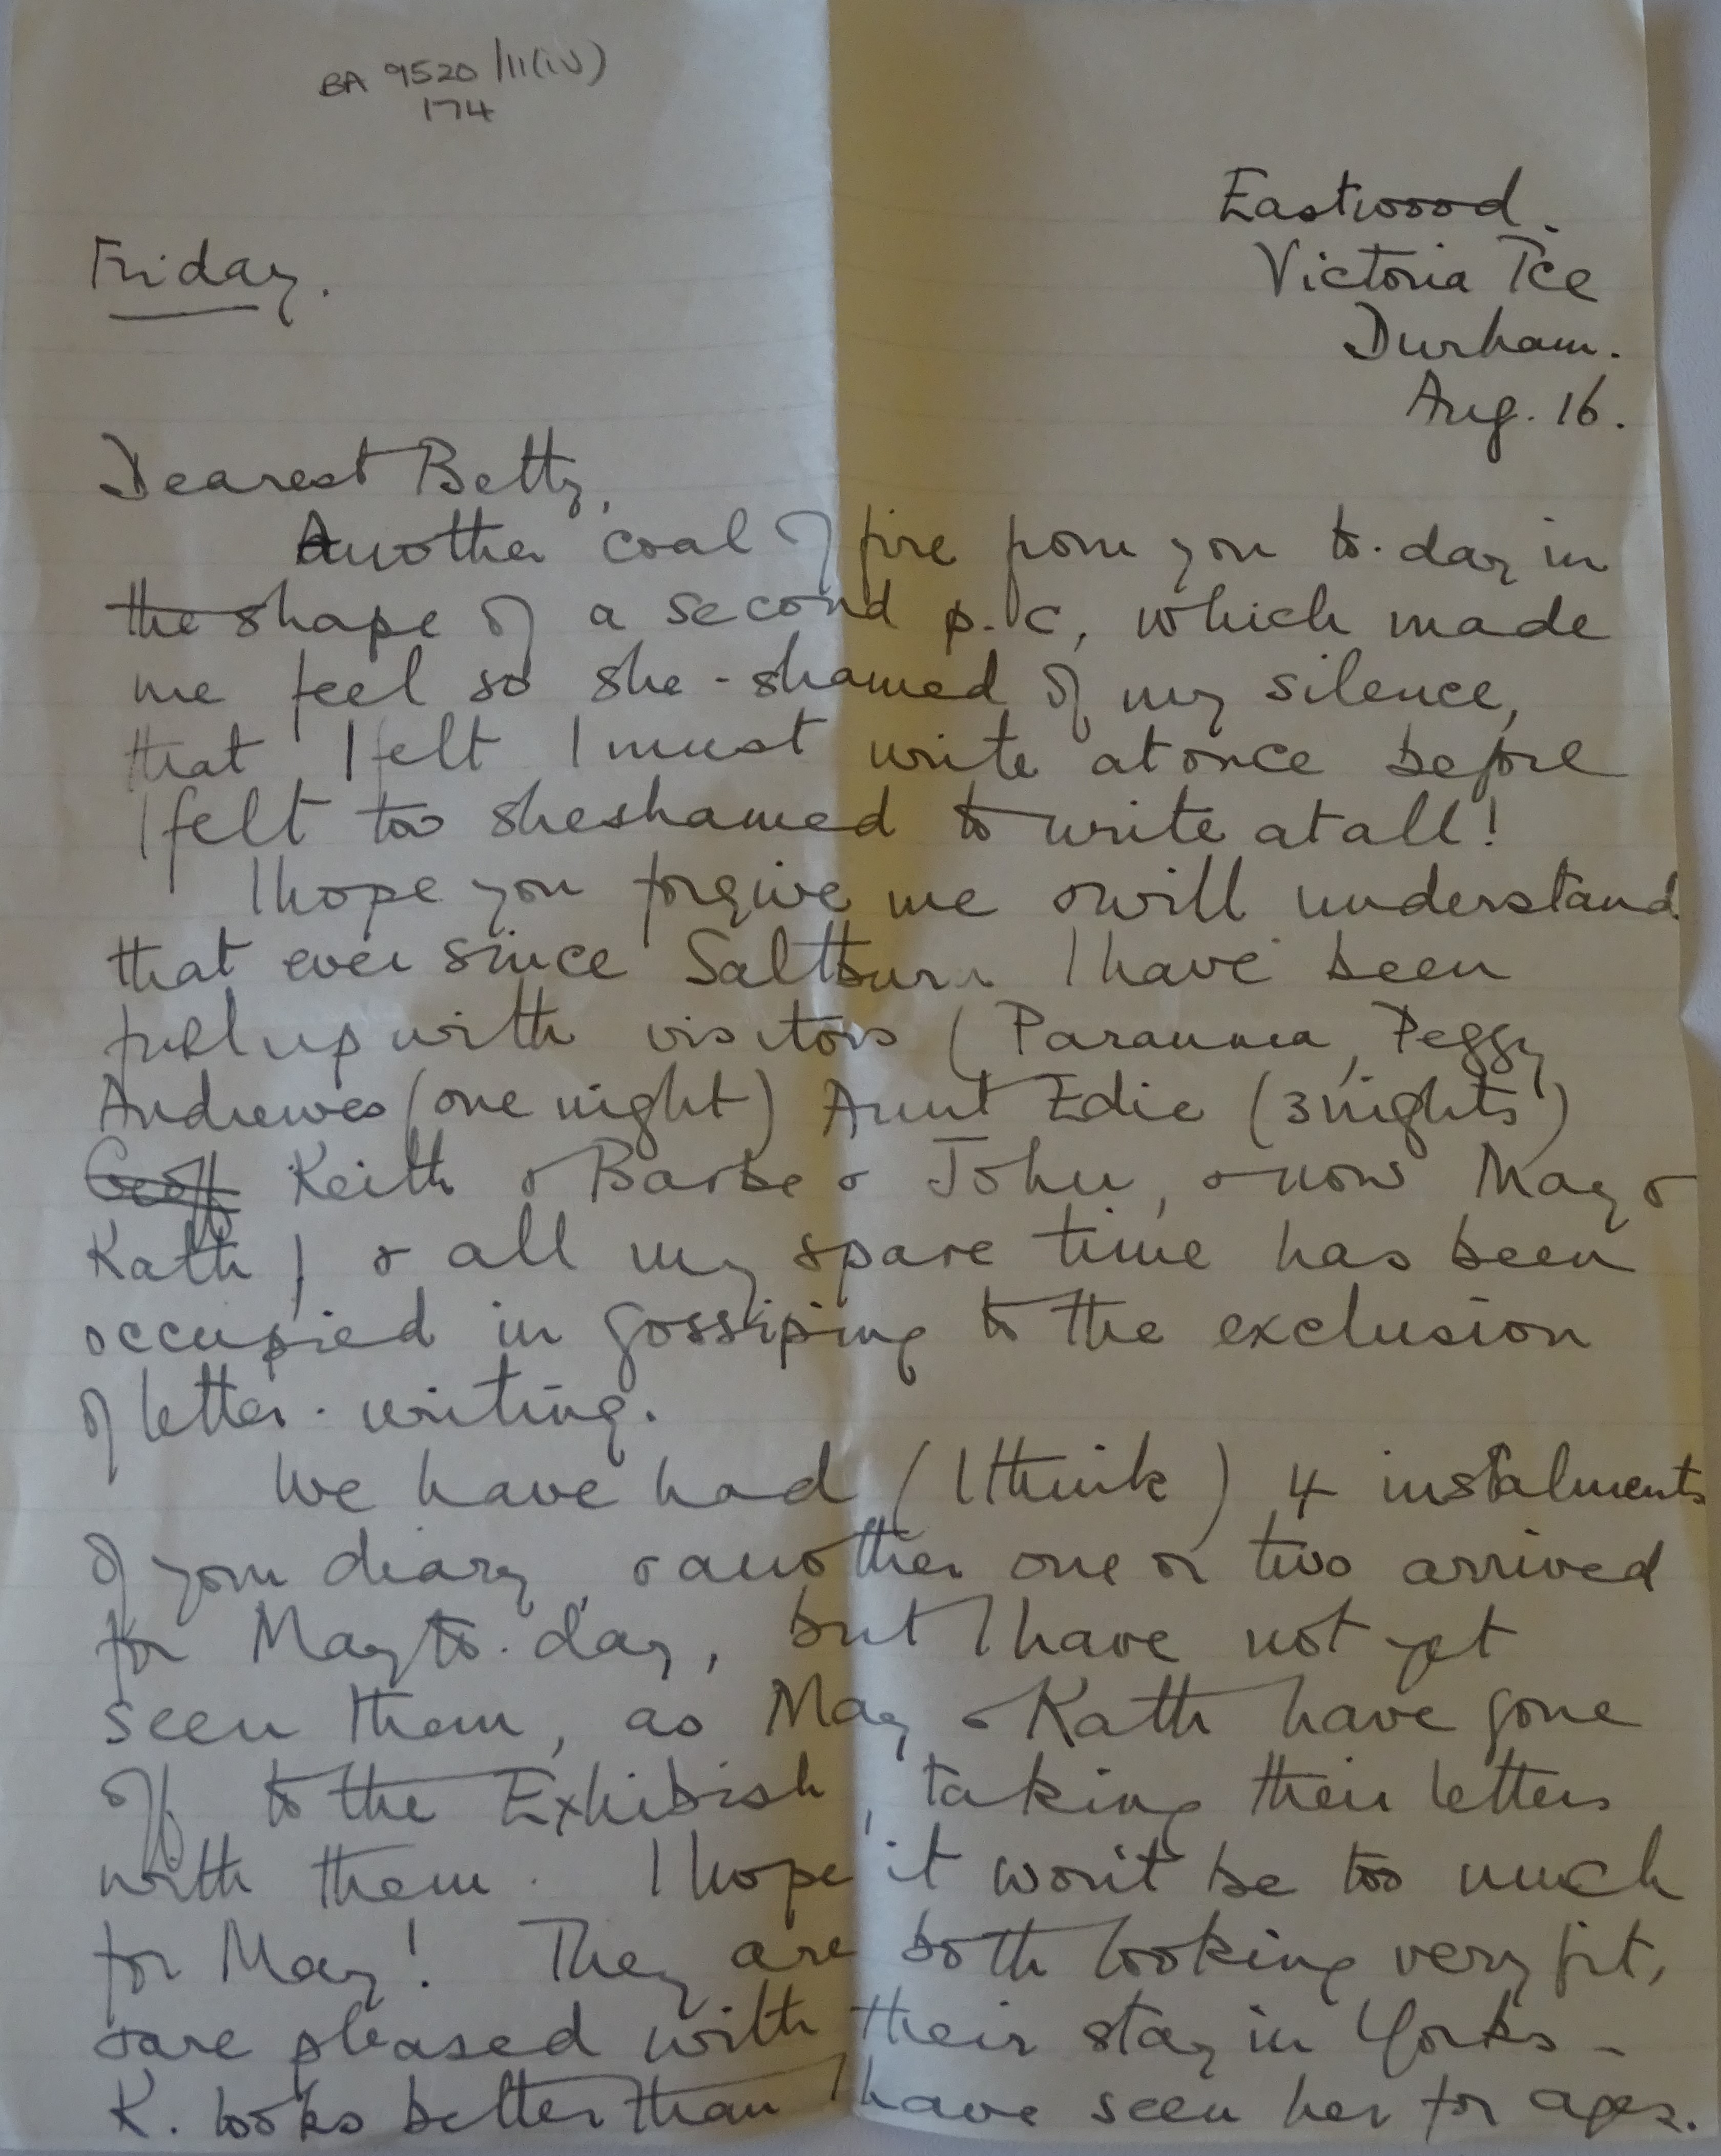 BA 9520/11(iv)
174
Eastwood.
Victoria Tce
Friday.
Durham.
Aug. 16.
Dearest Betty,
Another coal of fire from you to-day in
the shape of a second p.c, which made
me feel so she-shamed of my silence,
that I felt I must write at once before
I felt too sheshamed to write at all!
I hope you forgive me & will understand
that ever since Saltburn I have been
full up with visitors (Paranma, Peggy
Andrewes (one night) Aunt Edie (3 nights)
Geoff Keith & Barbe & John, & now May &
Kath) & all my spare time has been
occupied in gossiping to the exclusion
of letter-writing.
We have had (I think) 4 instalments
of your diary, & another one or two arrived
for May to-day, but I have not yet
seen them, as May & Kath have gone
off to the Exhibish, taking their letters
with them. I hope it won't be too much
for May! They are both looking very fit,
& are pleased with their stay in Yorks -
K. looks better than I have seen her for ages.